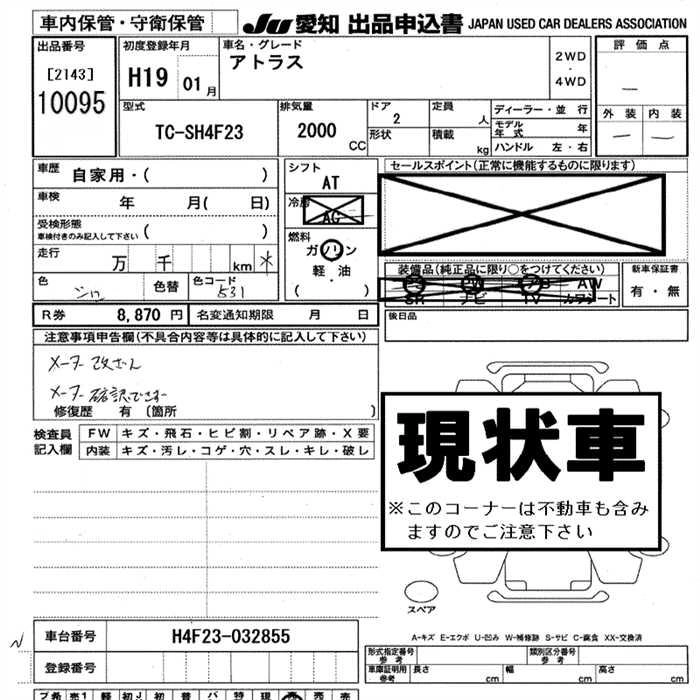 車内保管・守衛保管
JU 愛知 出品申込書 JAPAN USED CAR DEALERS ASSOCIATION
出品番号
[2143]
10095
初度登録年月
H19 01 月
車名・グレード
アトラス
2WD
・
4WD
評価点
―
外装 内装
― ―
型式
TC-SH4F23
排気量
2000
CC
ドア
2
形状
定員
人
積載
kg
ディーラー・並 行
モデル年式 年
ハンドル 左・右
車歴
自家用・( )
車検
年 月( 日)
受検形態
車検付きのみ記入して下さい ( )
走行
万 千 km *
色
シロ
色替
色コード
531
シフト
AT
冷房
AC
燃料
ガソリン
軽・油
( ・ )
セールスポイント(正常に機能するものに限ります)
装備品(純正品に限り○をつけてください)
PS PW AB AW
SR ナビ TV カワシート
新車保証書
有・無
後日品
R券 8,870 円
名変通知期限 月 日
注意事項申告欄(不具合内容等は具体的に記入して下さい)
メーター改ざん
メーター確認できず
修復歴 有 〔箇所 〕
検査員
記入欄
FW キズ・飛石・ヒビ割・リペア跡・X要
内装 キズ・汚レ・コゲ・穴・スレ・キレ・破レ
現状車
※このコーナーは不動車も含み
ますのでご注意下さい
スペア
A-キズ E-エクボ U-凹み W-補修跡 S-サビ C-腐食 XX-交換済
N
車台番号
H4F23-032855
登録番号
形式指定番号
参考
類別区分番号
参考
車庫証明用
参考
長さ cm 幅 cm 高さ cm